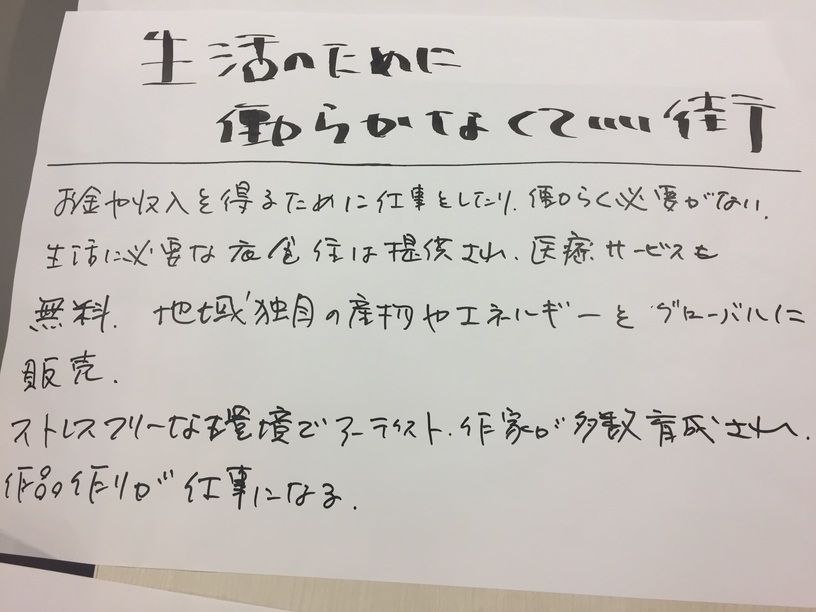 生活のために
働らかなくていい街
お金や収入を得るために仕事をしたり、働らく必要がない。
生活に必要な衣食住は提供され、医療サービスも
無料。地域独自の産物やエネルギーをグローバルに
販売。
ストレスフリーな環境でアーティスト、作家が多数育成され、
作品作りが仕事になる。